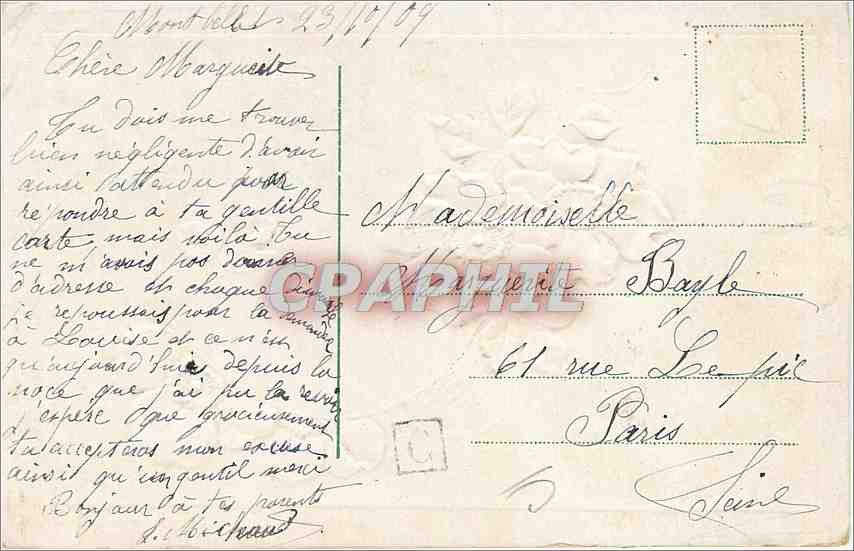 Montbéliard 23/10/09
Chère Marguerite
Tu dois me trouver
bien négligente d'avoir
ainsi attendu pour
répondre à ta gentille
carte, mais voilà. Tu
ne m'avais pas donner
d'adresse et chaque dimanche
je repoussais pour la demander
à Louise et ce n'est
qu'aujourd'hui depuis la
noce que j'ai pu la revoir
j'espère que gracieusement
tu accepteras mon excuse
ainsi qu'un gentil merci
Bonjour à tes parents
Mademoiselle
Marguerite Bayle
61 rue Lepic
Paris
Seine
C
CPAPHIL